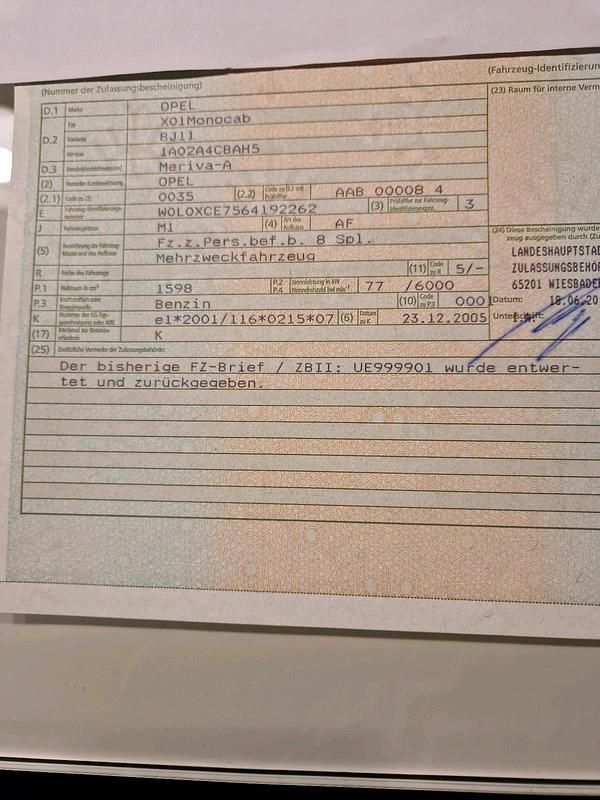 (Nummer der Zulassungsbescheinigung)
(Fahrzeug-Identifizierun
D.1 Marke OPEL
(23) Raum für interne Verm
Typ X01Monocab
D.2 Variante BJ11
Version 1A02A4CBAH5
D.3 Handelsbezeichnung(en) Meriva-A
(2) Hersteller-Kurzbezeichnung OPEL
(2.1) Code zu (2) 0035 (2.2) Code zu D.2 mit Prüfziffer AAB 00008 4
E Fahrzeug-Identifizierungsnummer W0L0XCE7564192262 (3) Prüfziffer zur Fahrzeug-Identifizierungsnr. 3
J Fahrzeugklasse M1 (4) Art des Aufbaus AF
(24) Diese Bescheinigung wurde
zeug ausgegeben durch (Zu
(5) Bezeichnung der Fahrzeugklasse und des Aufbaus Fz.z.Pers.bef.b. 8 Spl.
Mehrzweckfahrzeug
LANDESHAUPTSTAD
ZULASSUNGSBEHÖR
65201 WIESBADEN
R Farbe des Fahrzeugs (11) Code zu R 5/-
P.1 Hubraum in cm³ 1598 P.2 P.4 Nennleistung in kW Nenndrehzahl bei min⁻¹ 77 /6000
P.3 Kraftstoffart oder Energiequelle Benzin (10) Code zu P.3 0001
Datum: 18.06.20
K Nummer der EG-Typgenehmigung oder ABE e1*2001/116*0215*07 (6) Datum zu K 23.12.2005
Unterschrift:
(17) Merkmal zur Betriebserlaubnis K
(25) Zusätzliche Vermerke der Zulassungsbehörde:
Der bisherige FZ-Brief / ZBII: UE999901 wurde entwer-
tet und zurückgegeben.